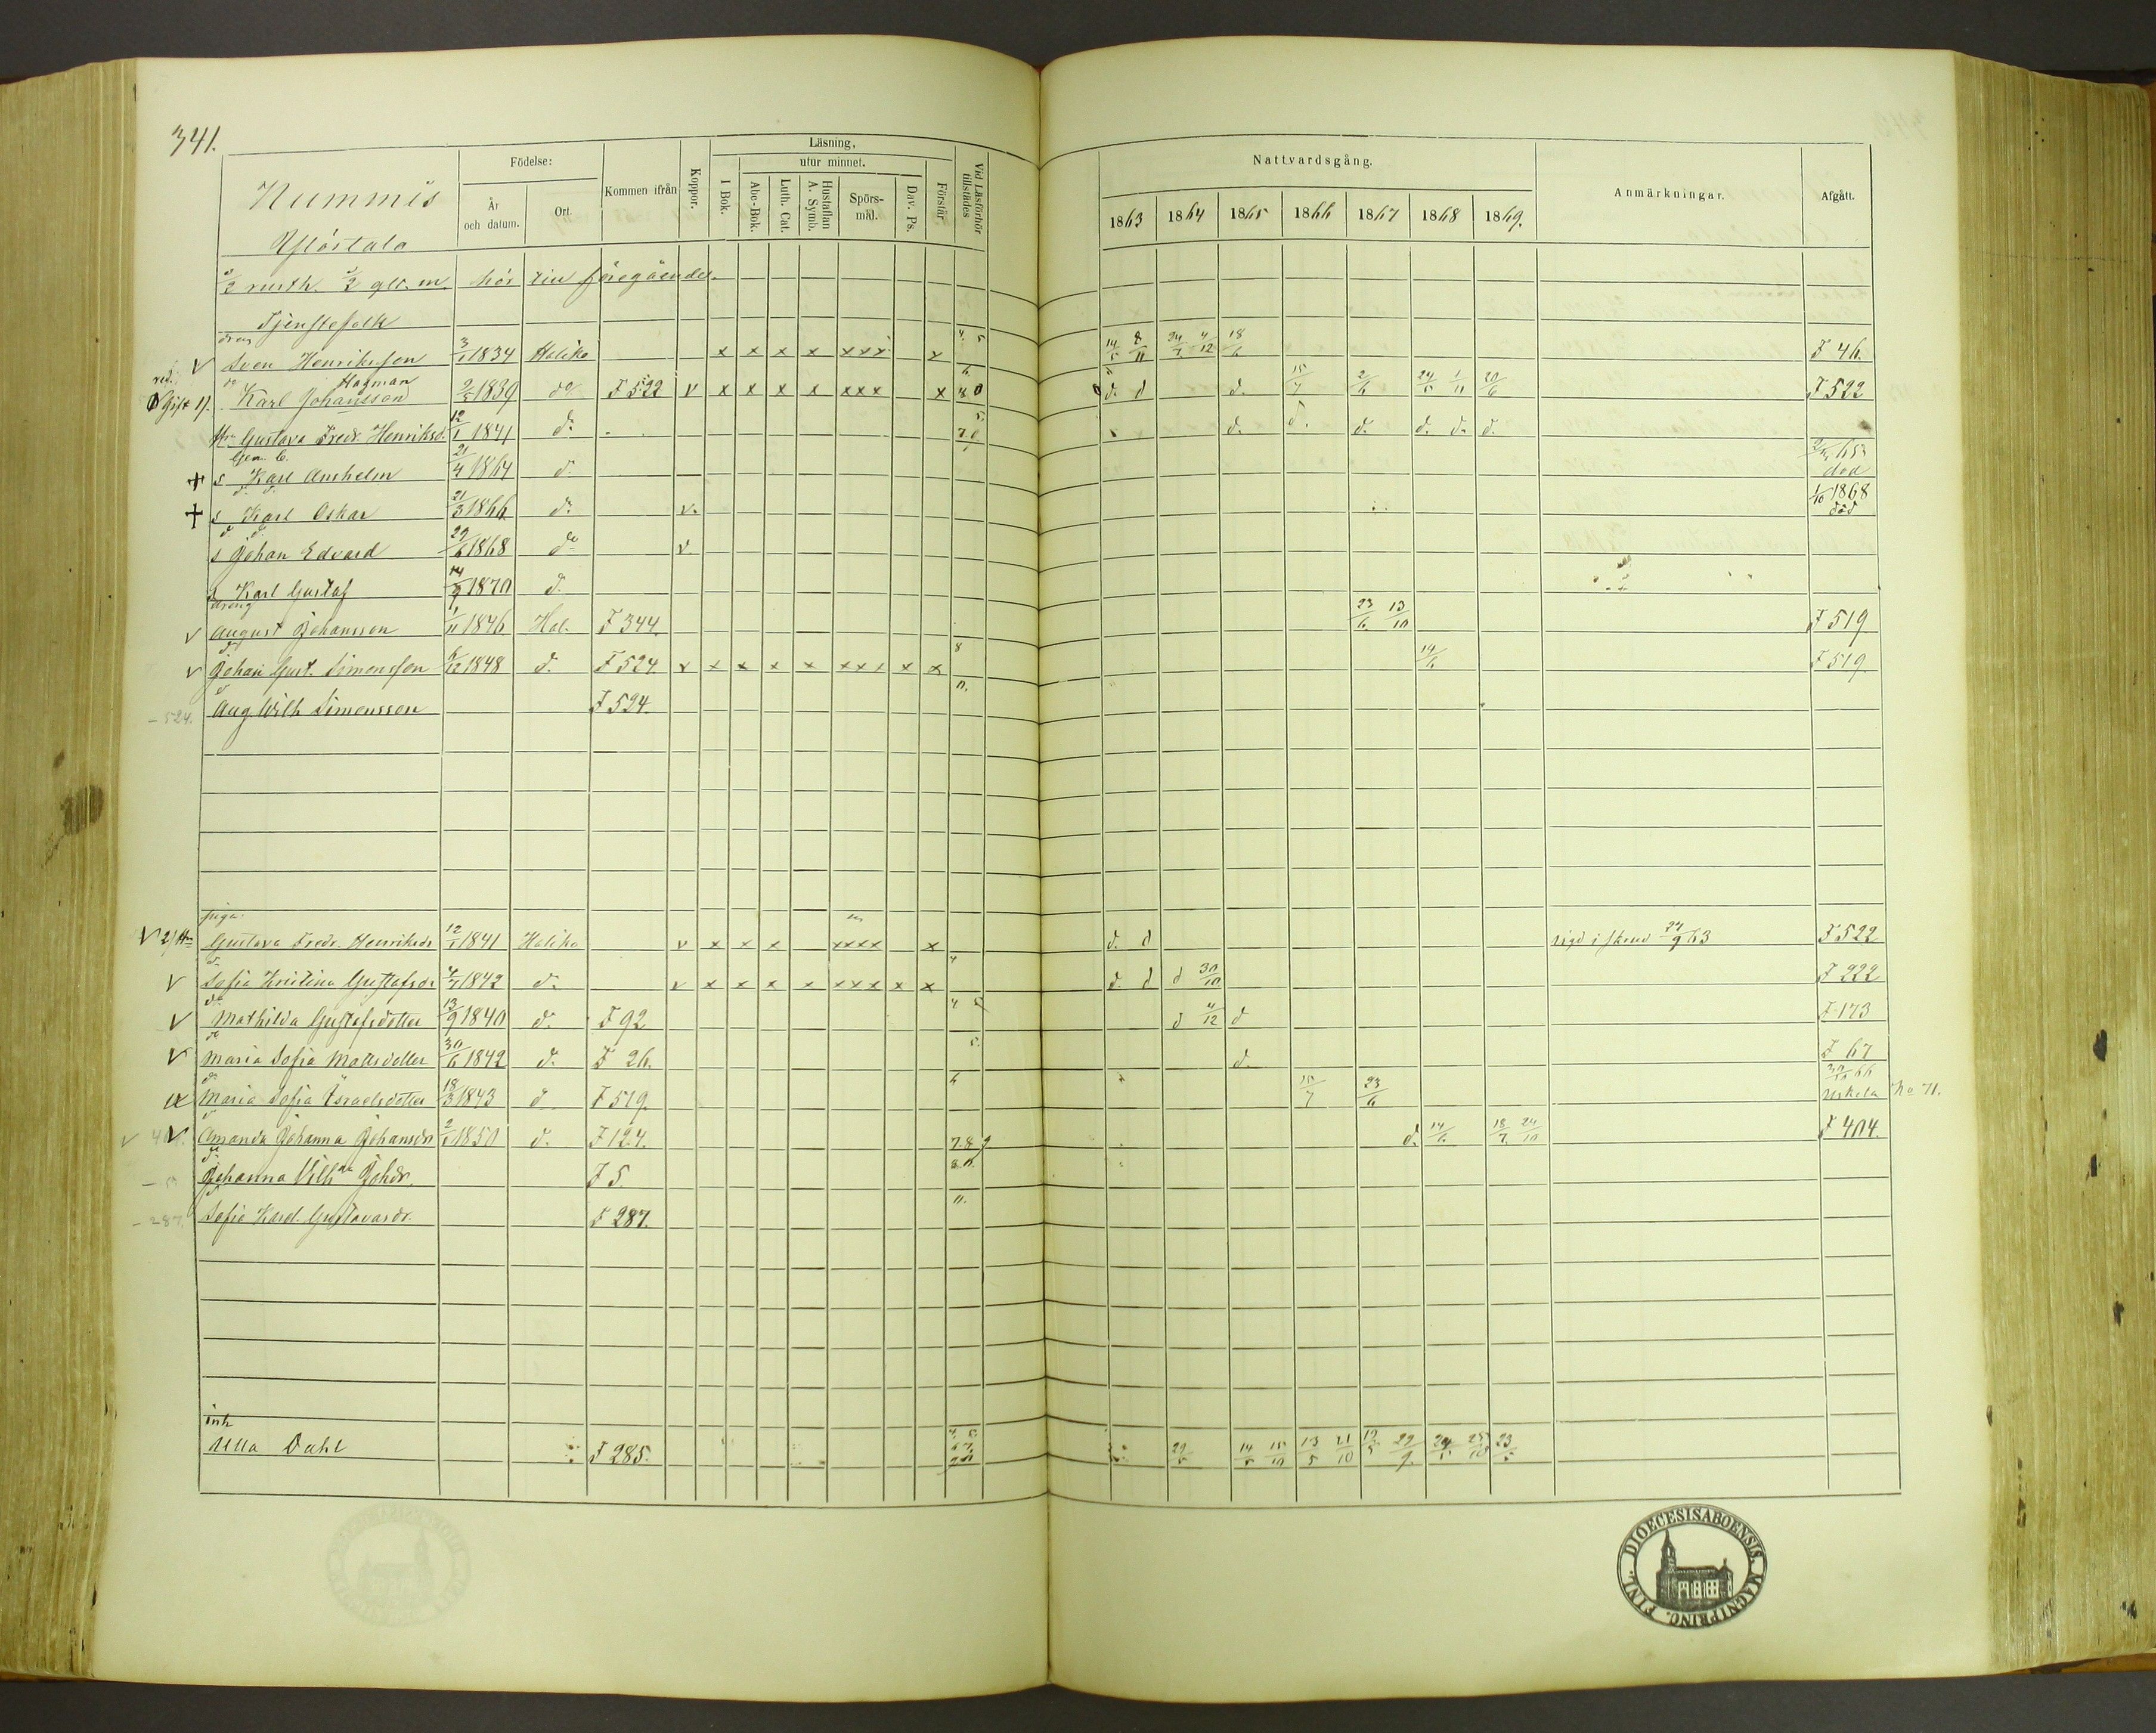 341.
Nummis
Yliöstala
Födelse:
År och datum.
Ort.
Kommen ifrån
Koppor.
Läsning,
utur minnet.
I Bok.
Abc-Bok.
Luth. Cat.
Hustaflan A. Symb.
Spörs-mål.
Dav. Ps.
Förstår
Vid Läsförhör tillstädes
Nattvardsgång.
1863 1864 1865 1866 1867 1868 1869.
Anmärkningar.
Afgått.
1/2 rusth. 1/2 gll. m. hör till föregående.
Tjenstefolk
dreng
v Sven Henriksson 3/1 1834 Haliko x x x x xxx x 4. 5 14/5 8/11 24/7 4/12 18/6 F 46.
Hagman
Gift 1). Karl Johansson 2/5 1839 do F 522 v x x x x xxx x d. d d. 15/7 2/6 24/5 1/11 20/6 F 522
Hu Gustava Fredr. Henriksd. 12/1 1841 d: d. d. d. d. d. d.
+ s Karl Anshelm 21/4 1864 d. 65 död
+ s Karl Oskar 21/3 1866 d: v. 1/10 1868 död
s Johan Edvard 29/6 1868 do v.
s Karl Gustaf 14/9 1870 d.
dreng
v August Johansson 1/11 1846 Hal. F 344. 23/6 13/10 F 519
v Johan Gust. Simonsson 6/12 1848 d. F 524 v x x x x xxx x x 8 14/6 F 519.
-524. Aug. Wilh Simonsson F 524. 11.
piga.
v 2) Gustava Fredr. Henriksdr 12/1 1841 Haliko v x x x xxxx x d. d vigd i 27/9 63 F 522
v Sofia Kristina Gustafsdr 4/4 1842 d. v x x x x xxx x x 4 d. d d 30/10 F 222
v Mathilda Gustafsdotter 13/9 1840 d. F 92 4 5 d 4/12 d F 173
v Maria Sofia Mattsdotter 30/6 1842 d. F 26. 5. d. F 67
Maria Sofia Israelsdotter 18/3 1843 d F 519. 6 15/7 23/6 30/10 66 Uskela No 71.
v Amanda Johanna Johansdr 2/1 1850 d. F 124. 7.8 9 d. 14/6 18/7 24/10 F 404.
Johanna Vilhna Johdr. F 5. 8.11.
-287. Sofia Karol. Gustavasdr. F 287. 11.
inh
Ulla Dahl F 285. 29/6 14/5 15/10 13/5 21/10 12/5 29/9. 24/5 25/10 23/5
DIOECESIS ABOENSIS. MAGNI PRINC. FINL.